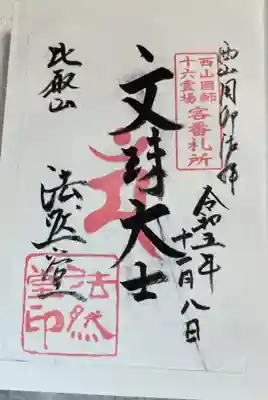 西山国師
十六霊場
客番札所
令和五年
十一月八日
文殊大士
比叡山
法然堂
法然
堂印